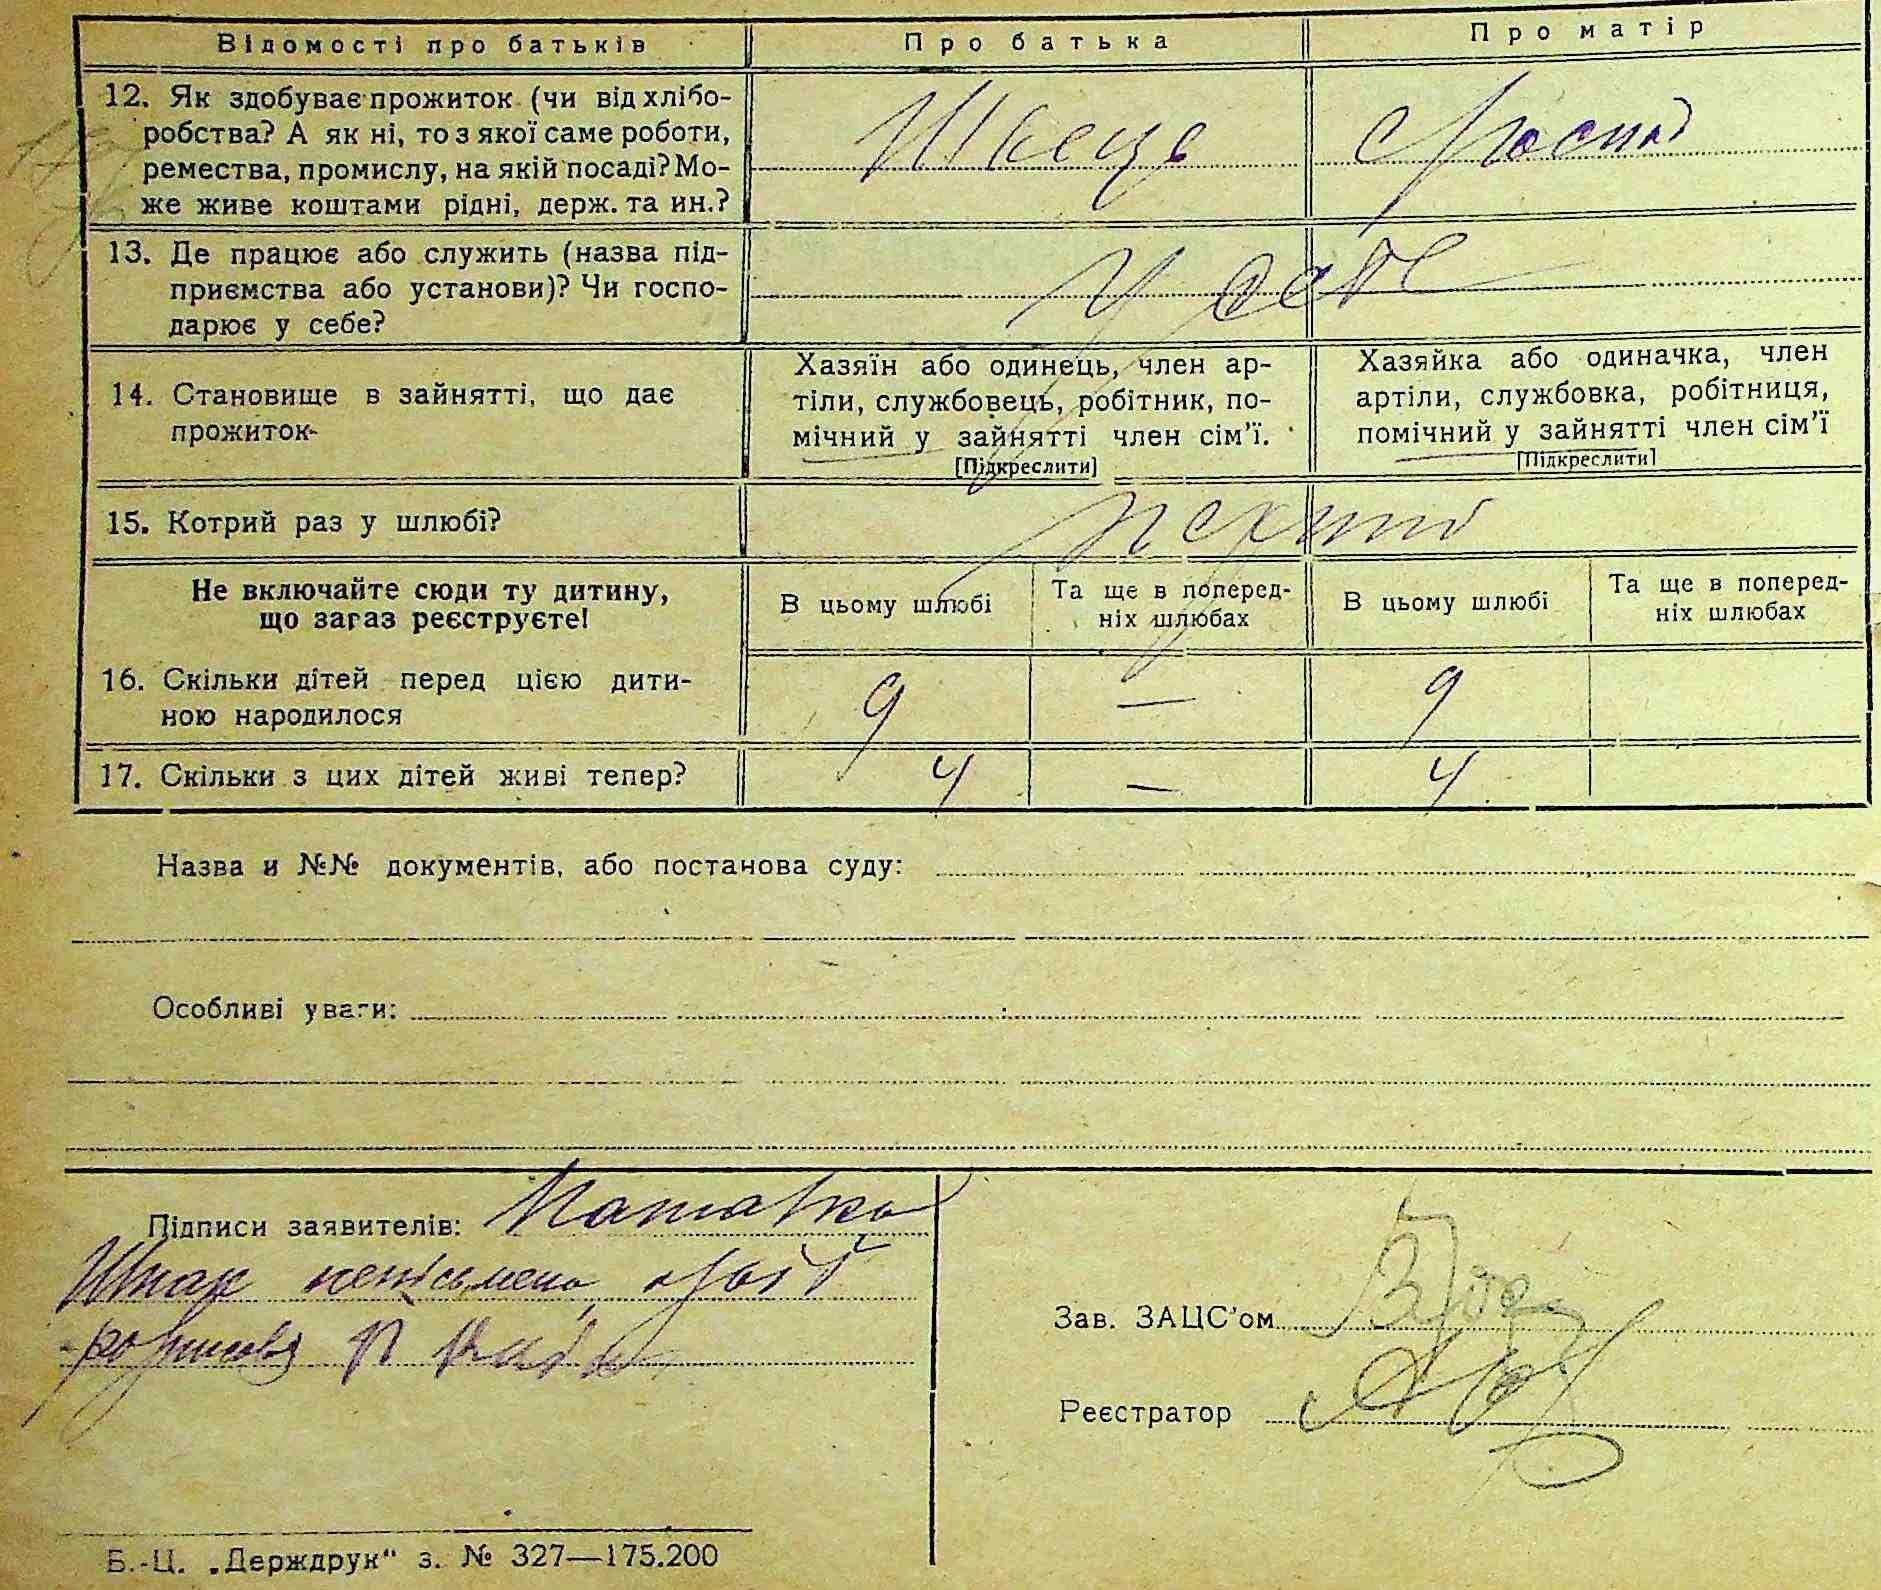 Відомості про батьків Про батька Про матір
12. Як здобуває прожиток (чи від хлібо-
робства? А як ні, то з якої саме роботи,
ремества, промислу, на якій посаді? Мо-
же живе коштами рідні, держ. та ин.?
Швець Господ
13. Де працює або служить (назва під-
приємства або установи)? Чи госпо-
дарює у себе?
У себе
14. Становище в зайнятті, що дає
прожиток
Хазяїн або одинець, член ар-
тіли, службовець, робітник, по-
мічний у зайнятті член сім’ї.
[Підкреслити]
Хазяйка або одиначка, член
артіли, службовка, робітниця,
помічний у зайнятті член сім’ї
[Підкреслити]
15. Котрий раз у шлюбі?
перший
Не включайте сюди ту дитину,
що зараз реєструєте!
В цьому шлюбі
Та ще в поперед-
ніх шлюбах
В цьому шлюбі
Та ще в поперед-
ніх шлюбах
16. Скільки дітей перед цією дити-
ною народилося
9 — 9
17. Скільки з цих дітей живі тепер? 4 — 4
Назва и №№ документів, або постанова суду:
Особливі уваги:
Підписи заявителів:
Шпак неписьмена
Зав. ЗАЦС’ом
Реєстратор
Б.-Ц. „Держдрук“ з. № 327—175.200